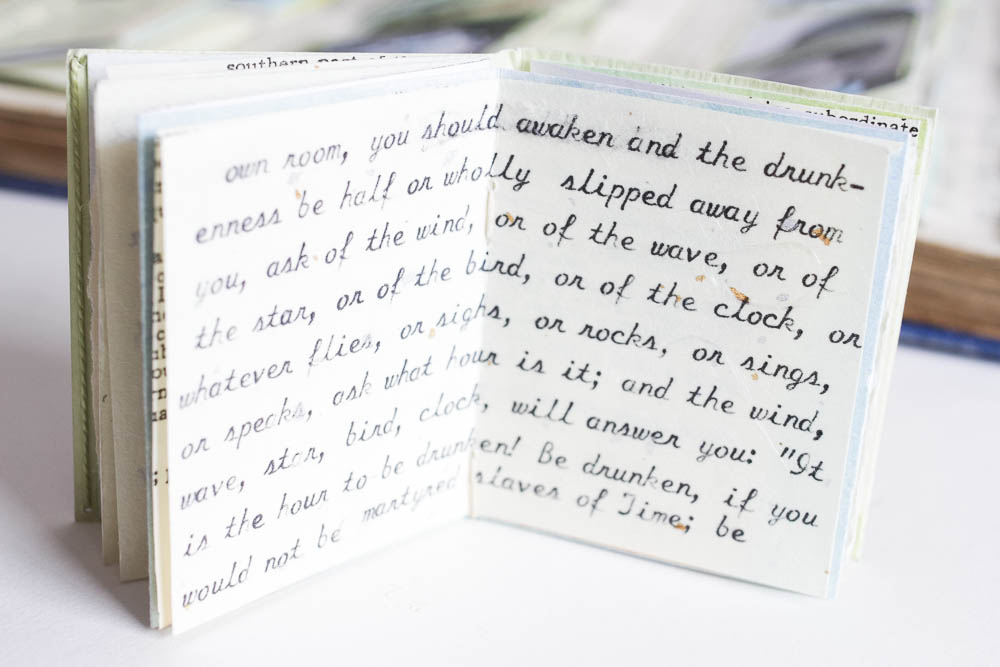 southern
subordinate
own room, you should awaken and the drunk-
enness be half or wholly slipped away from
you, ask of the wind, or of the wave, or of
the star, or of the bird, or of the clock, or
whatever flies, or sighs, or rocks, or sings,
or speaks, ask what hour is it; and the wind,
wave, star, bird, clock, will answer you: "It
is the hour to be drunken! Be drunken, if you
would not be martyred slaves of Time; be